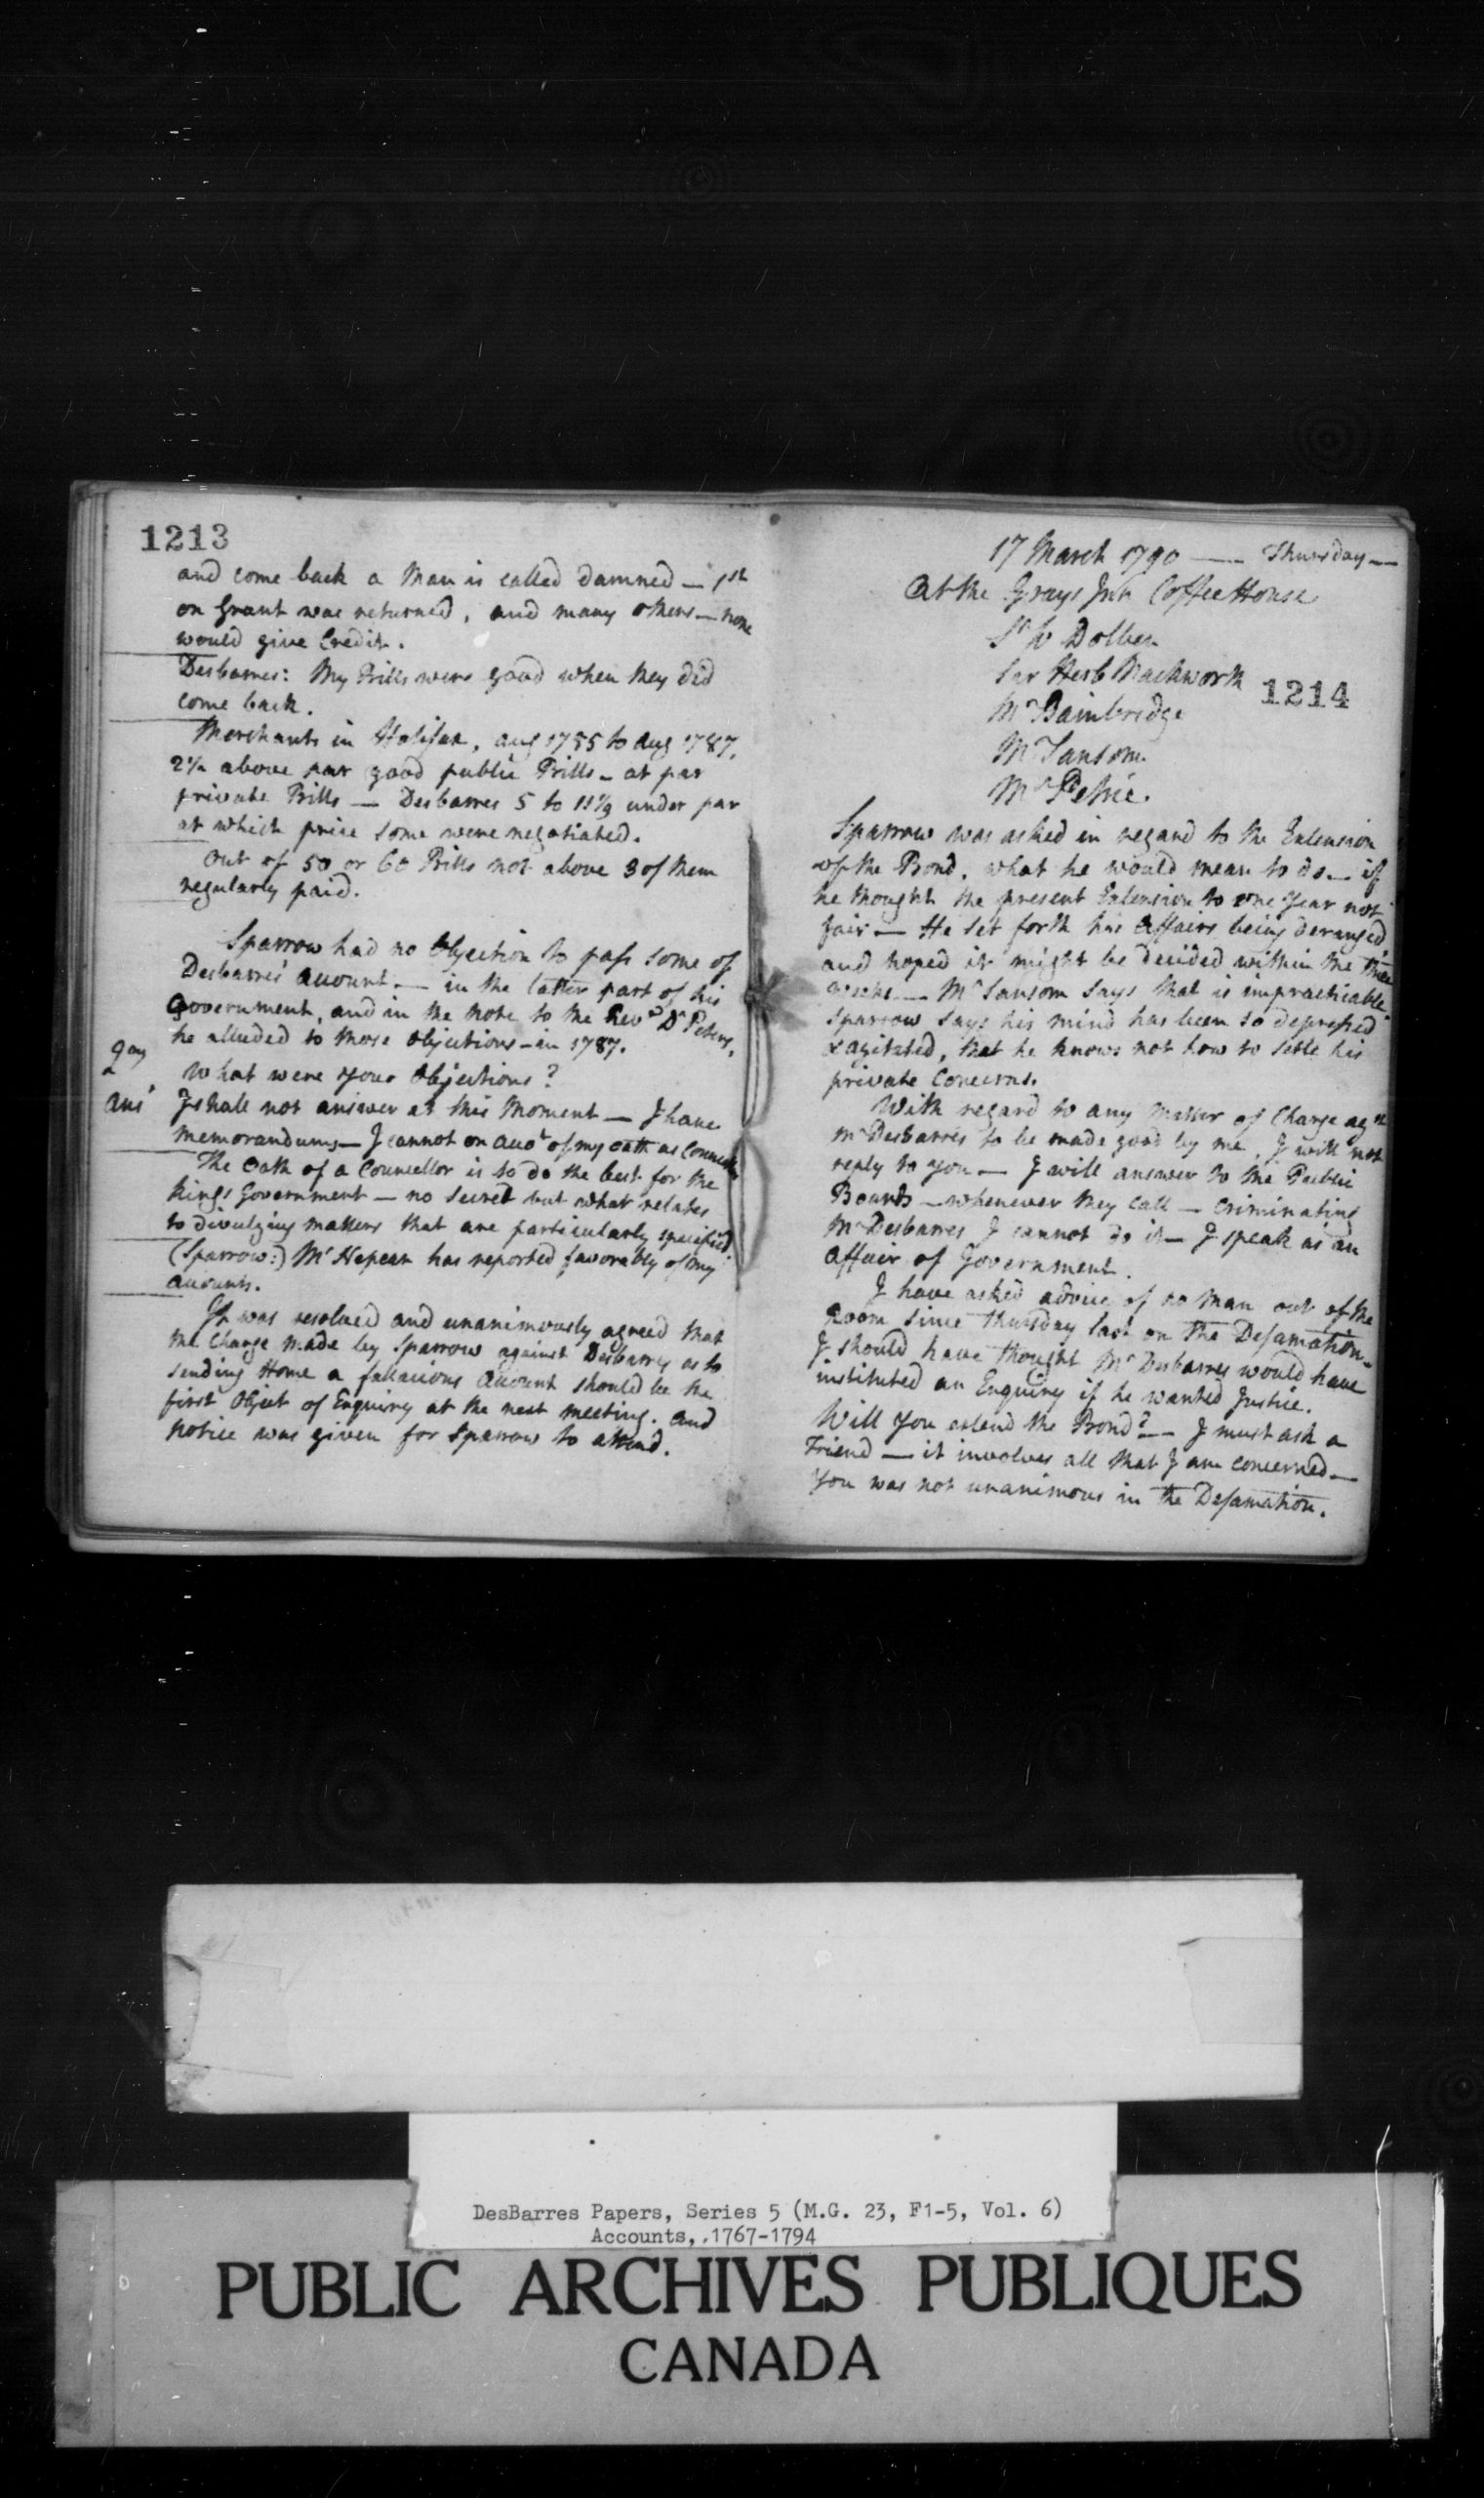 1213
and come back a Man is called damned — 1st
on Grant was returned, and many others — none
would give Credit.
Desbarres: My Bills were good when they did
come back.
Merchants in Halifax, aug 1785 to Aug 1787,
2½ above par good public Bills — at par
private Bills — Desbarres 5 to under par
at which price some were negotiated.
Out of 50 or 60 Bills not above 3 of them
regularly paid.
Sparrow had no Objection to pass some of
Desbarres' account — in the latter part of his
Government, and in the Note to the Revd Dr Peters,
he alluded to those Objections — in 1787.
What were your Objections?
Ans I shall not answer at this Moment — I have
Memorandums — I cannot on accot of my oath as
The Oath of a Councellor is to do the best for the
Kings Government — no Secret but what relates
to divulging matters that are particularly specified
(Sparrow:) Mr Nepean has reported favorably of my
accounts.
It was resolved and unanimously agreed that
the Charge made by Sparrow against Desbarres as to
sending Home a fallacious Account should be the
first Object of Enquiry at the next meeting. and
notice was given for Sparrow to attend.
17 March 1790 — Thursday —
At the Grays Inn Coffee House
Sr W Dolben
Sir Herb Mackworth
1214
Mr Bainbridge
Mr Sansom
Mr Petrie.
Sparrow was asked in regard to the Extension
of the Bond, what he would mean to do — if
he thought the present Extension to one Year not
fair — He set forth his Affairs being deranged,
and hoped it might be decided within the three
weeks — Mr Sansom says that is impracticable
Sparrow says his mind has been so depressed
& agitated, that he knows not how to settle his
private Concerns.
With regard to any Matter of Charge agst
Mr Desbarres to be made good by me, I will not
reply to you — I will answer to the Public
Boards — whenever they call — Criminating
Mr Desbarres I cannot do it — I speak as an
Affair of Government.
I have asked advice of no Man out of the
Room since Thursday last on the Defamation —
I should have thought Mr Desbarres would have
instituted an Enquiry if he wanted Justice.
Will you extend the Bond? — I must ask a
Friend — it involves all that I am concerned —
You was not unanimous in the Defamation.
DesBarres Papers, Series 5 (M.G. 23, F1-5, Vol. 6)
Accounts, 1767-1794
PUBLIC ARCHIVES PUBLIQUES
CANADA